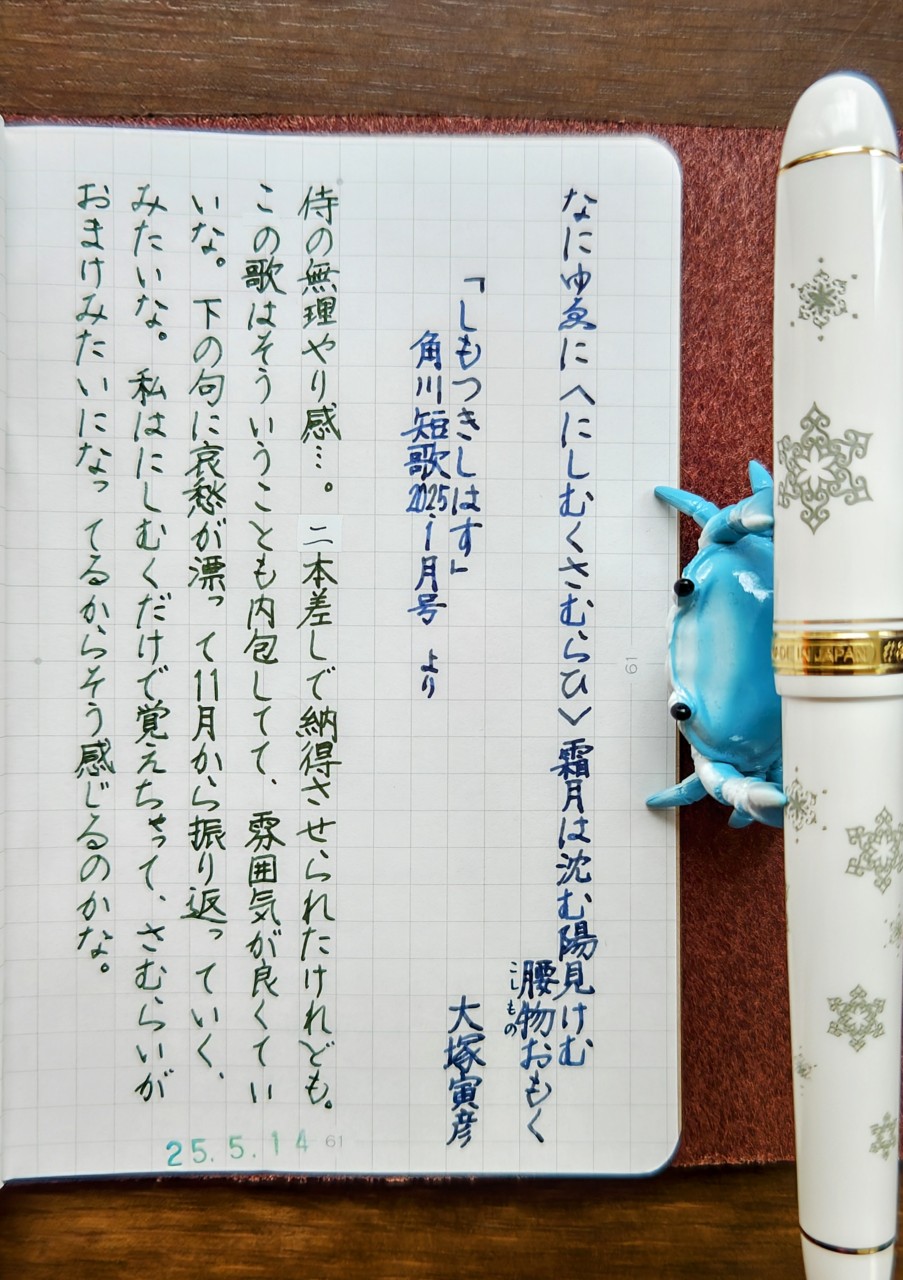 なにゆゑに〈にしむくさむらひ〉霜月は沈む陽見けむ
腰物おもく
こしもの
「しもつきしはす」
大塚寅彦
角川短歌2025.1月号 より
侍の無理やり感…。二本差しで納得させられたけれども。
この歌はそういうことも内包してて、雰囲気が良くてい
いな。下の句に哀愁が漂って11月から振り返っていく、
みたいな。私はにしむくだけで覚えちゃって、さむらいが
おまけみたいになってるからそう感じるのかな。
25.5.14
61
61
MADE IN JAPAN